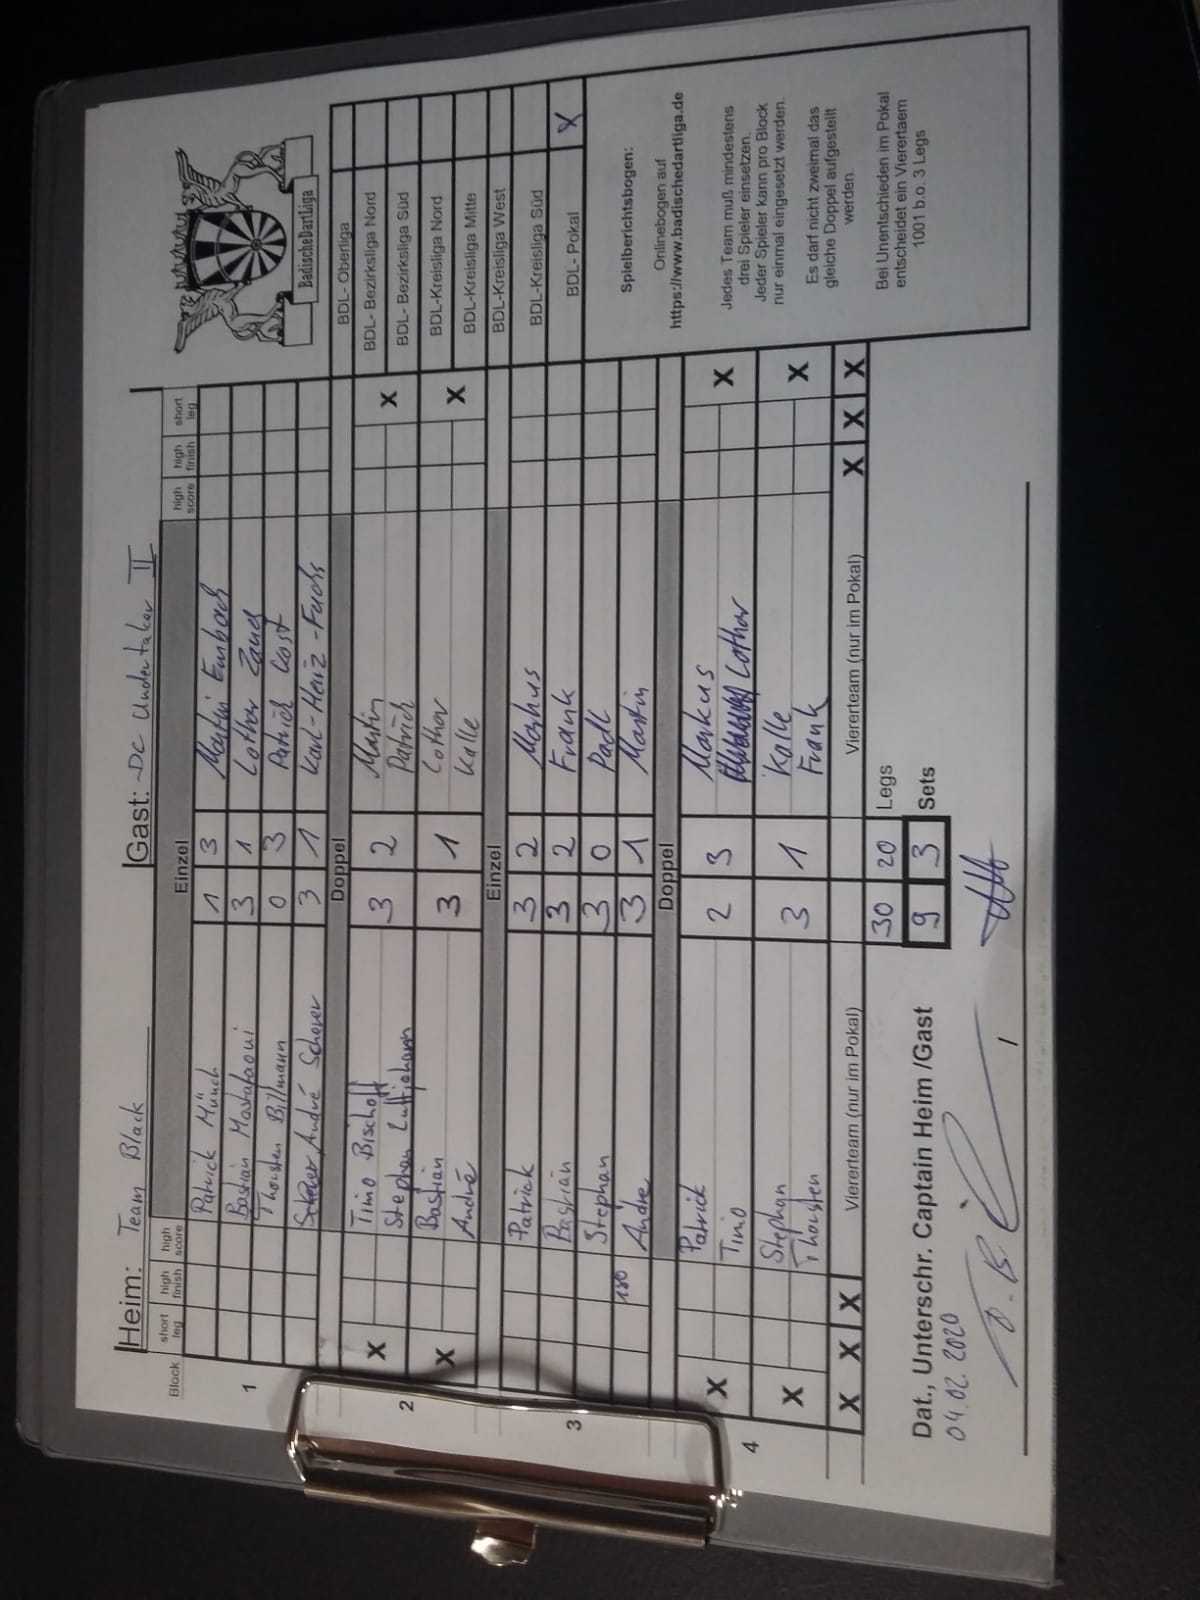 Heim: Team Black Gast: DC Undertaker II
BadischeDartLiga
Block short leg high finish high score Einzel high score high finish short leg
1
Patrick Münch 1 3 Martin Embach
Bastian Mostafaoui 3 1 Lothar Zand
Thorsten Billmann 0 3 Patrick Kost
André Scherer 3 1 Karl-Heinz-Fuchs
Doppel
2
X Timo Bischoff 3 2 Martin X
Stephan Luttjohann Patrick
X Bastian 3 1 Lothar X
André Kalle
Einzel
3
Patrick 3 2 Markus
Bastian 3 2 Frank
Stephan 3 0 Padl
180 André 3 1 Martin
Doppel
4
X Patrick 2 3 Markus X
Timo Lothar
X Stephan 3 1 Kalle X
Thorsten Frank
X X X Viererteam (nur im Pokal) Viererteam (nur im Pokal) X X X
30 20 Legs
Dat., Unterschr. Captain Heim /Gast 9 3 Sets
04.02.2020
/
BDL- Oberliga
BDL- Bezirksliga Nord
BDL- Bezirksliga Süd
BDL-Kreisliga Nord
BDL-Kreisliga Mitte
BDL-Kreisliga West
BDL-Kreisliga Süd
BDL- Pokal X
Spielberichtsbogen:
Onlinebogen auf
https://www.badischedartliga.de
Jedes Team muß mindestens
drei Spieler einsetzen.
Jeder Spieler kann pro Block
nur einmal eingesetzt werden.
Es darf nicht zweimal das
gleiche Doppel aufgestellt
werden.
Bei Unentschieden im Pokal
entscheidet ein Vierertaem
1001 b.o. 3 Legs